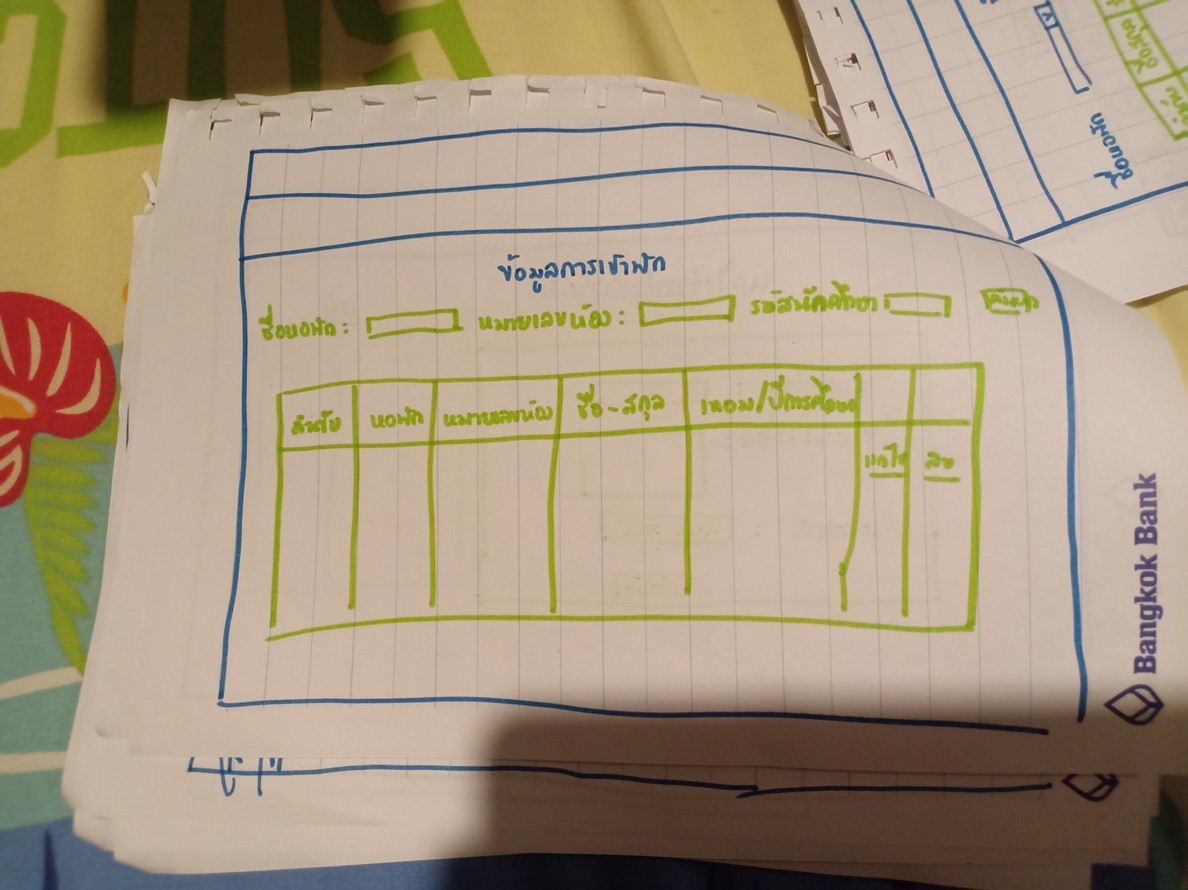 ข้อมูลการเข้าพัก
ชื่อหอพัก : หมายเลขห้อง : รหัสนักศึกษา : ค้นหา
ลำดับ หอพัก หมายเลขห้อง ชื่อ-สกุล เทอม/ปีการศึกษา
แก้ไข ลบ
Bangkok Bank
ชื่อหอพัก